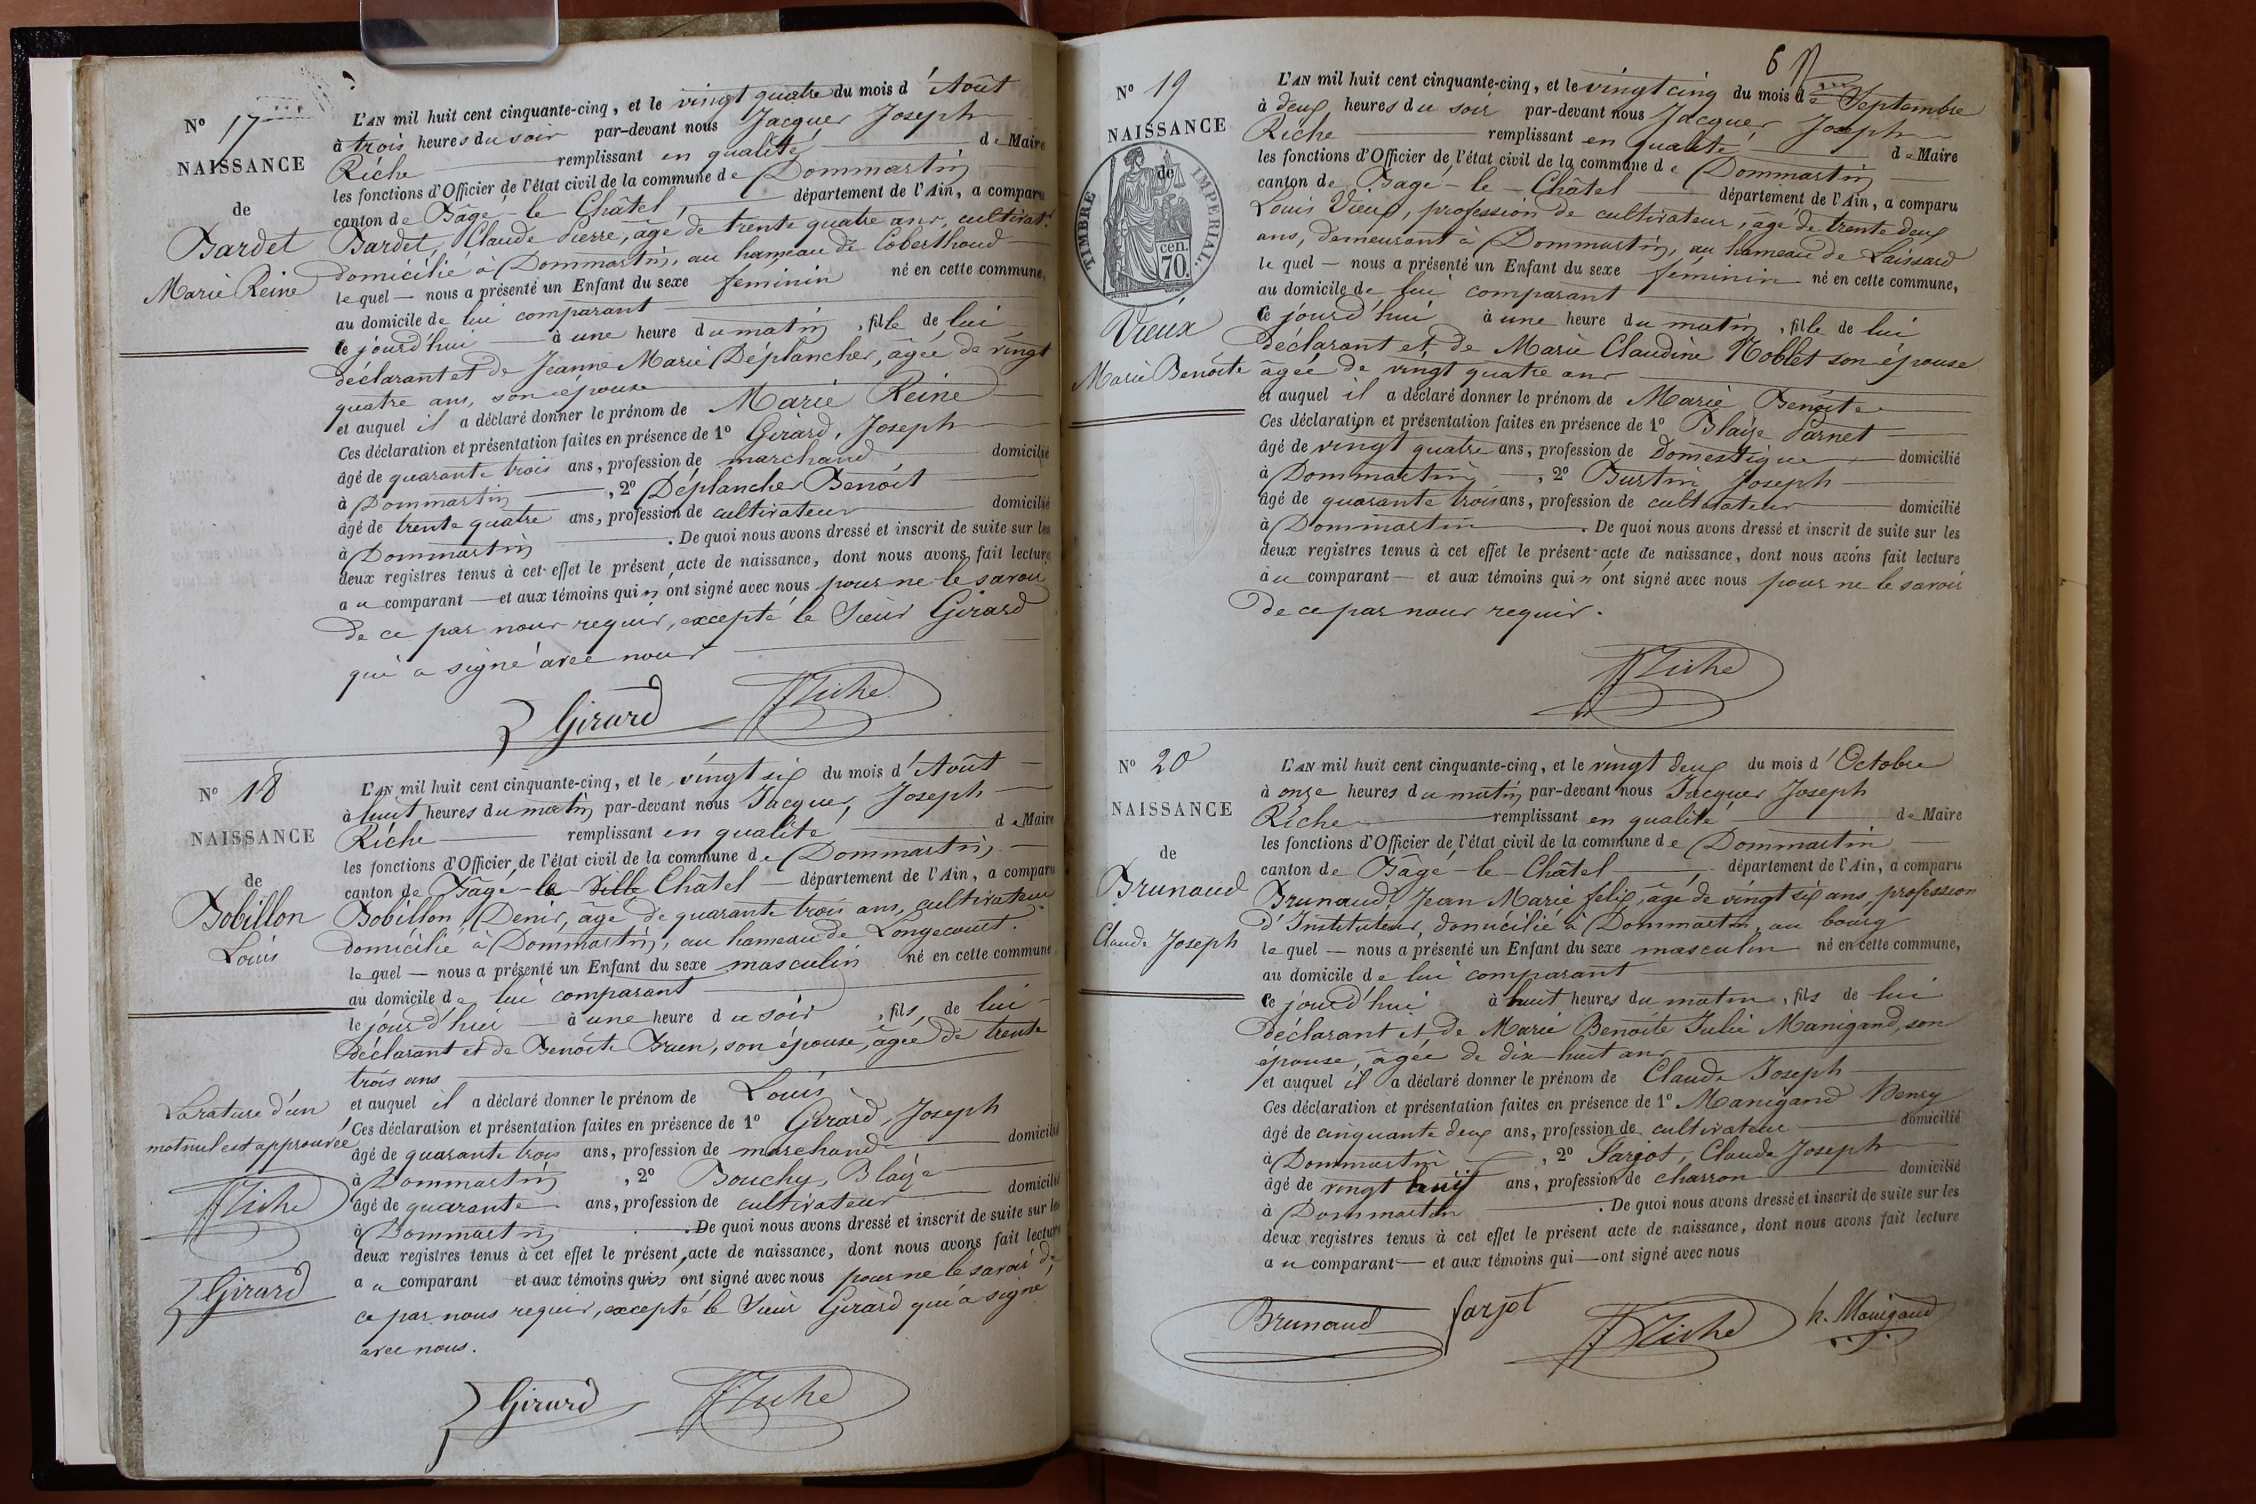 N° 17
NAISSANCE
de
Bardet
Marie Reine
L'AN mil huit cent cinquante-cinq, et le vingt quatre du mois d'Août
à trois heures du soir par-devant nous Jacques Joseph
Riche remplissant en qualité de Maire
les fonctions d'Officier de l'état civil de la commune de Dommartin
canton de Bâgé-le-Châtel, département de l'Ain, a comparu
Bardet, Claude Pierre, âgé de trente quatre ans, cultivat.r
domicilié à Dommartin, au hameau de Coberthoud
le quel — nous a présenté un Enfant du sexe feminin né en cette commune,
au domicile de lui comparant
ce jourd'hui à une heure du matin, fille de lui
déclarant et de Jeanne Marie Déplanches, âgée de vingt
quatre ans, son épouse
et auquel il a déclaré donner le prénom de Marie Reine
Ces déclaration et présentation faites en présence de 1° Girard, Joseph
âgé de quarante trois ans, profession de marchand domicilié
à Dommartin, 2° Déplanches Benoit
âgé de trente quatre ans, profession de cultivateur domicilié
à Dommartin. De quoi nous avons dressé et inscrit de suite sur les
deux registres tenus à cet effet le présent acte de naissance, dont nous avons fait lecture
au comparant — et aux témoins qui n'ont signé avec nous pour ne le savoir
de ce par nous requis, excepté le Sieur Girard
qui a signé avec nous
Girard JJRiche
N° 18
NAISSANCE
de
Bobillon
Louis
L'AN mil huit cent cinquante-cinq, et le vingt six du mois d'Août
à huit heures du matin par-devant nous Jacques, Joseph
Riche remplissant en qualité de Maire
les fonctions d'Officier de l'état civil de la commune de Dommartin
canton de Bâgé-le-Ville Châtel — département de l'Ain, a comparu
Bobillon Denis, âgé de quarante trois ans, cultivateur
domicilié à Dommartin, au hameau de Longecourt.
le quel — nous a présenté un Enfant du sexe masculin né en cette commune
au domicile de lui comparant
le jour d'hier à une heure du soir, fils de lui
déclarant et de Benoite Brun, son épouse, âgée de trente
trois ans
et auquel il a déclaré donner le prénom de Louis
Ces déclaration et présentation faites en présence de 1° Girard, Joseph
âgé de quarante trois ans, profession de marchand domicilié
à Dommartin, 2° Bouchy, Blaize
âgé de quarante ans, profession de cultivateur domicilié
à Dommartin. De quoi nous avons dressé et inscrit de suite sur les
deux registres tenus à cet effet le présent acte de naissance, dont nous avons fait lecture
au comparant et aux témoins qui n'ont signé avec nous pour ne le savoir de
ce par nous requis, excepté le Sieur Girard qui a signé
avec nous.
La rature d'un
mot nul est approuvée
JJRiche
Girard
Girard JJRiche
6
N° 19
NAISSANCE
de
TIMBRE IMPERIAL
70 cen.
Vieux
Marie Benoite
L'AN mil huit cent cinquante-cinq, et le vingt cinq du mois de Septembre
à deux heures du soir par-devant nous Jacques Joseph
Riche remplissant en qualité de Maire
les fonctions d'Officier de l'état civil de la commune de Dommartin
canton de Bagé-le-Châtel département de l'Ain, a comparu
Louis Vieux, profession de cultivateur, âgé de trente deux
ans, demeurant à Dommartin, au hameau de Laissard
le quel — nous a présenté un Enfant du sexe féminin né en cette commune,
au domicile de lui comparant
ce jourd'hui à une heure du matin, fille de lui
déclarant et de Marie Claudine Noblet son épouse
âgée de vingt quatre ans
et auquel il a déclaré donner le prénom de Marie Benoite
Ces déclaration et présentation faites en présence de 1° Blaize Parnet
âgé de vingt quatre ans, profession de Domestique domicilié
à Dommartin, 2° Burtin Joseph
âgé de quarante trois ans, profession de cultivateur domicilié
à Dommartin. De quoi nous avons dressé et inscrit de suite sur les
deux registres tenus à cet effet le présent acte de naissance, dont nous avons fait lecture
au comparant — et aux témoins qui n'ont signé avec nous pour ne le savoir
de ce par nous requis.
JJRiche
N° 20
NAISSANCE
de
Brunaud
Claude Joseph
L'AN mil huit cent cinquante-cinq, et le vingt deux du mois d'Octobre
à onze heures du matin par-devant nous Jacques Joseph
Riche remplissant en qualité de Maire
les fonctions d'Officier de l'état civil de la commune de Dommartin
canton de Bâgé-le-Châtel, département de l'Ain, a comparu
Brunaud, Jean Marie felix, âgé de vingt six ans, profession
d'Instituteur, domicilié à Dommartin, au bourg
le quel — nous a présenté un Enfant du sexe masculin né en cette commune,
au domicile de lui comparant
ce jourd'hui à huit heures du matin, fils de lui
déclarant et de Marie Benoite Julie Manigand, son
épouse, âgée de dix-huit ans
et auquel il a déclaré donner le prénom de Claude Joseph
Ces déclaration et présentation faites en présence de 1° Manigand Henry
âgé de cinquante deux ans, profession de cultivateur domicilié
à Dommartin, 2° Farjot, Claude Joseph
âgé de vingt huit ans, profession de charron domicilié
à Dommartin. De quoi nous avons dressé et inscrit de suite sur les
deux registres tenus à cet effet le présent acte de naissance, dont nous avons fait lecture
au comparant — et aux témoins qui — ont signé avec nous
Brunaud farjot JJRiche h. Manigand